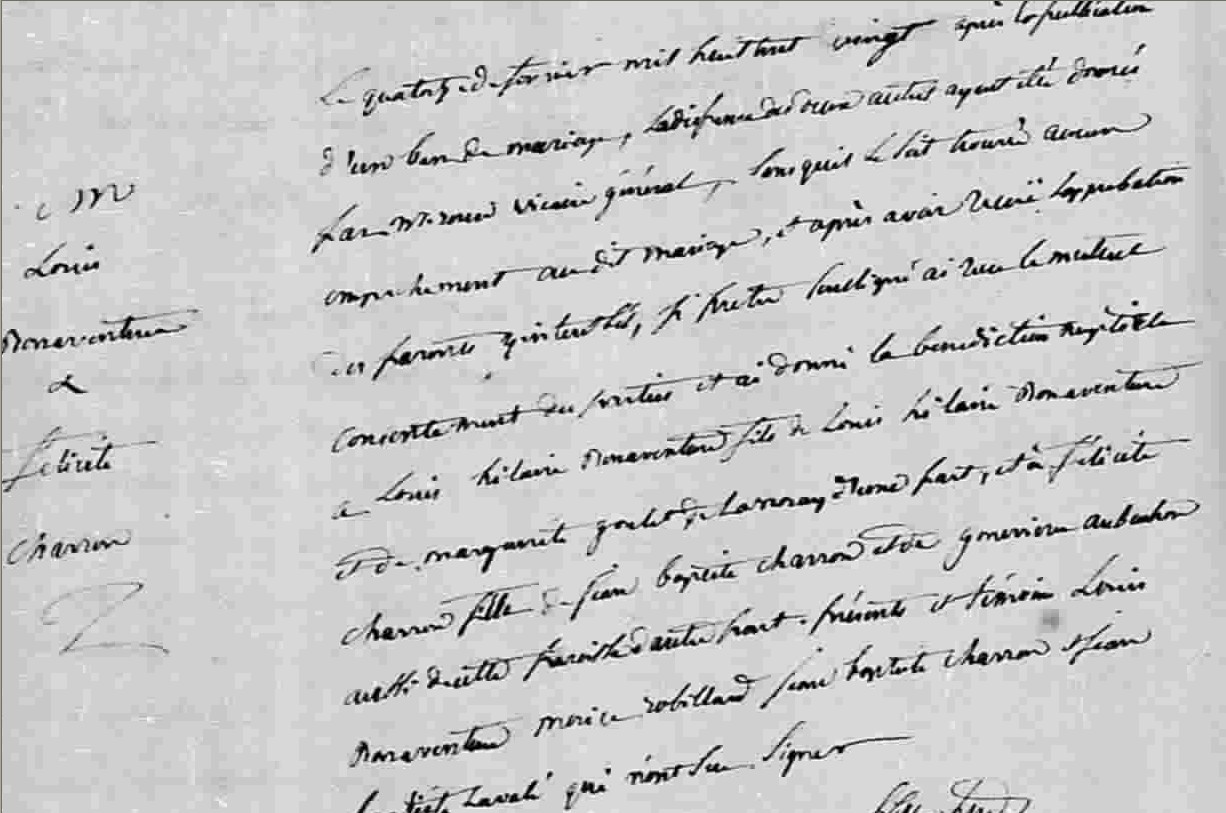 M
Louis
Bonaventure
&
félicité
charron
Le quatorze de fevrier mil huit cent vingt après la publication
d'un ban de mariage, la dispense des deux autres ayant été donnés
par vicaire général, sans qu'il se soit trouvé aucun
empechement au dit mariage, et après avoir l'approbation
des parents interessés, je pretre soussigné ai recu le mutuel
consentement des parties et ai donné la benediction nuptiale
a Louis hilaire Bonaventure fils de Louis hilaire Bonaventure
et de marguerite goulet de Lanoray d'une part, et a félicité
charron fille de jean baptiste charron et de genevieve aubuchon
aussi de cette paroisse d'autre part. présents et témoin Louis
Bonaventure robillard jean baptiste charron et jean
baptiste Lavalé qui n'ont seu signer